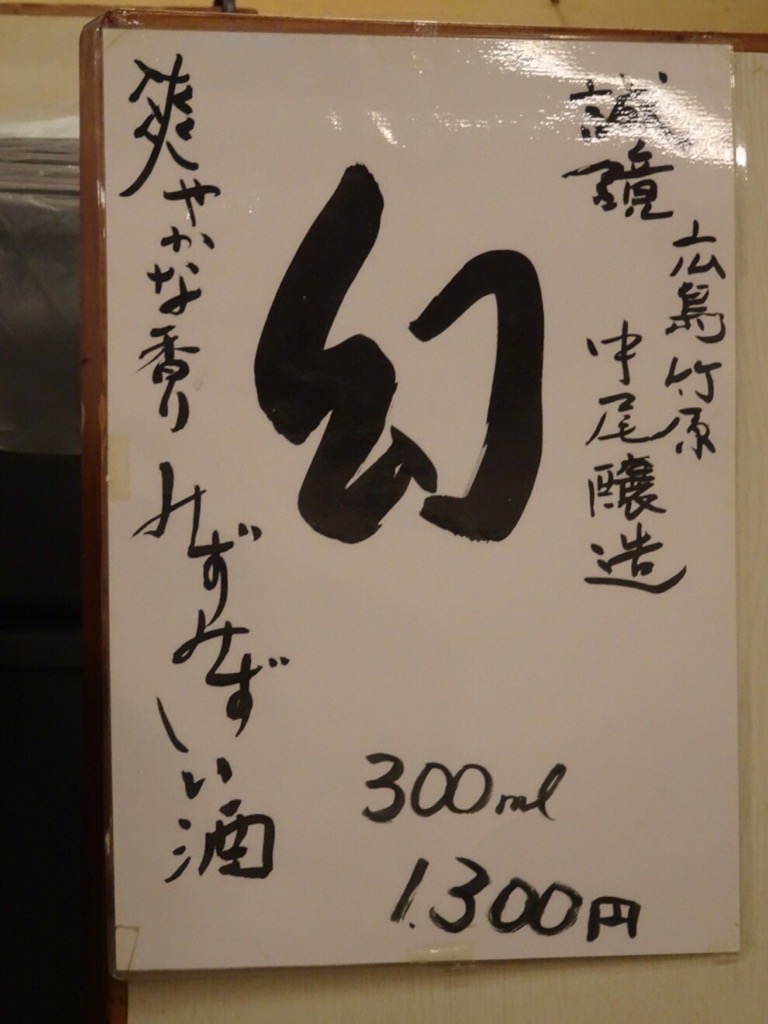 誠鏡
広島竹原
中尾醸造
幻
爽やかな香り
みずみずしい酒
300ml
1.300円